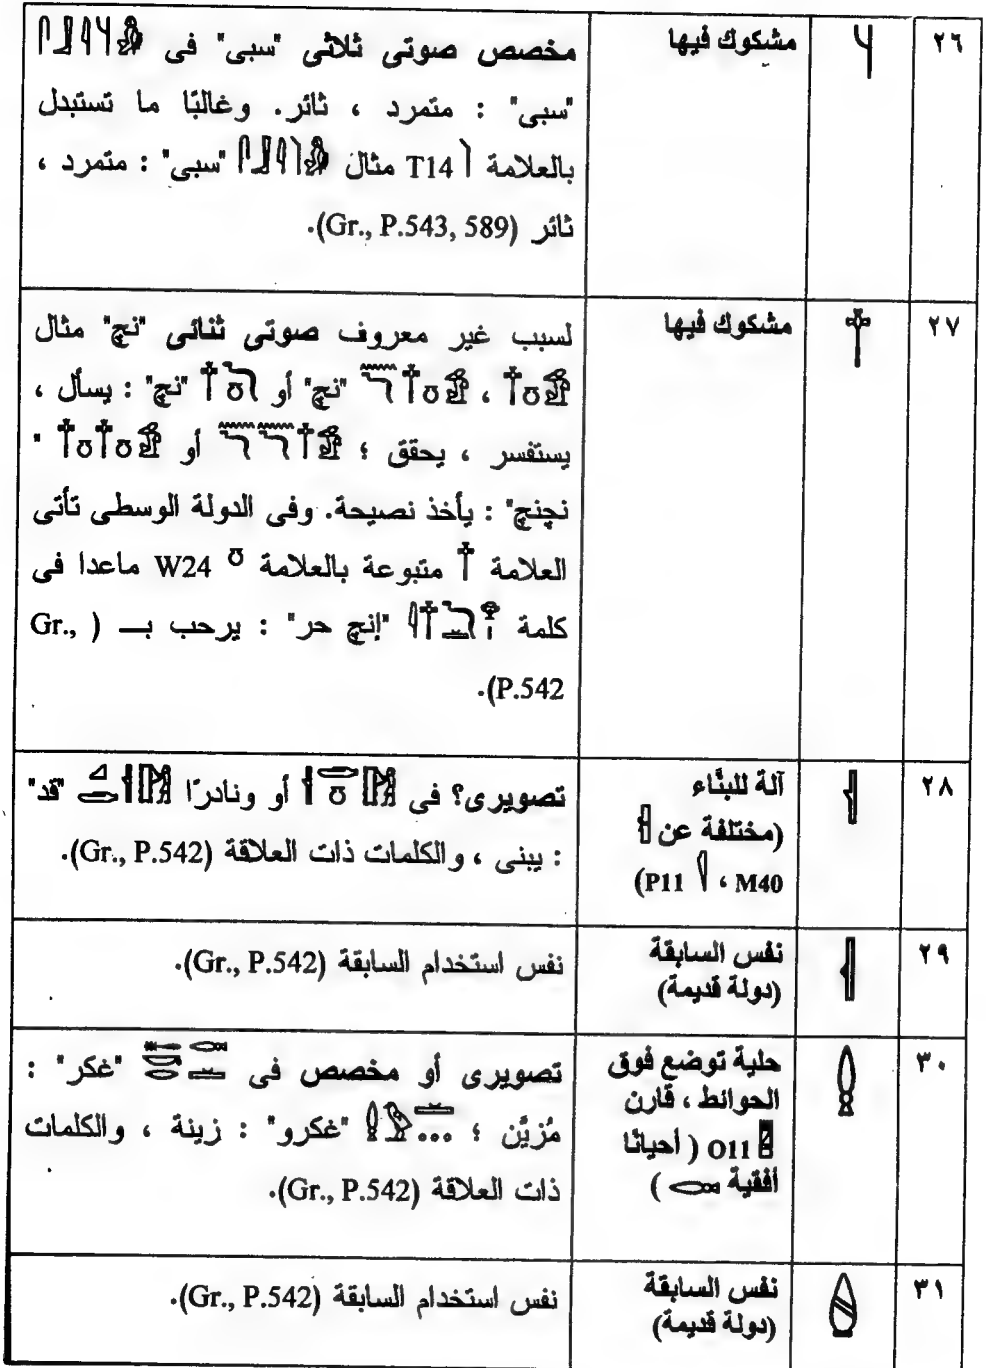 ٢٦
مشكوك فيها
مخصص صوتى ثلاثى "سبى" فى
"سبى" : متمرد ، ثائر. وغالبًا ما تستبدل
بالعلامة T14 مثال "سبى" : متمرد ،
ثائر (Gr., P.543, 589).
٢٧
مشكوك فيها
لسبب غير معروف صوتى ثنائى "نچ" مثال
، "نچ" أو "نچ" : يسأل ،
يستفسر ، يحقق ؛ أو "
نچنچ" : يأخذ نصيحة. وفى الدولة الوسطى تأتى
العلامة متبوعة بالعلامة W24 ماعدا فى
كلمة "إنچ حر" : يرحب بـــ ( Gr.,
P.542).
٢٨
آلة للبنَّاء
(مختلفة عن
M40 ، P11)
تصويرى؟ فى أو ونادرًا "قد"
: يبنى ، والكلمات ذات العلاقة (Gr., P.542).
٢٩
نفس السابقة
(دولة قديمة)
نفس استخدام السابقة (Gr., P.542).
٣٠
حلية توضع فوق
الحوائط ، قارن
O11 ( أحيانًا
أفقية )
تصويرى أو مخصص فى "غكر" :
مُزيَّن ؛ ... "غكرو" : زينة ، والكلمات
ذات العلاقة (Gr., P.542).
٣١
نفس السابقة
(دولة قديمة)
نفس استخدام السابقة (Gr., P.542).